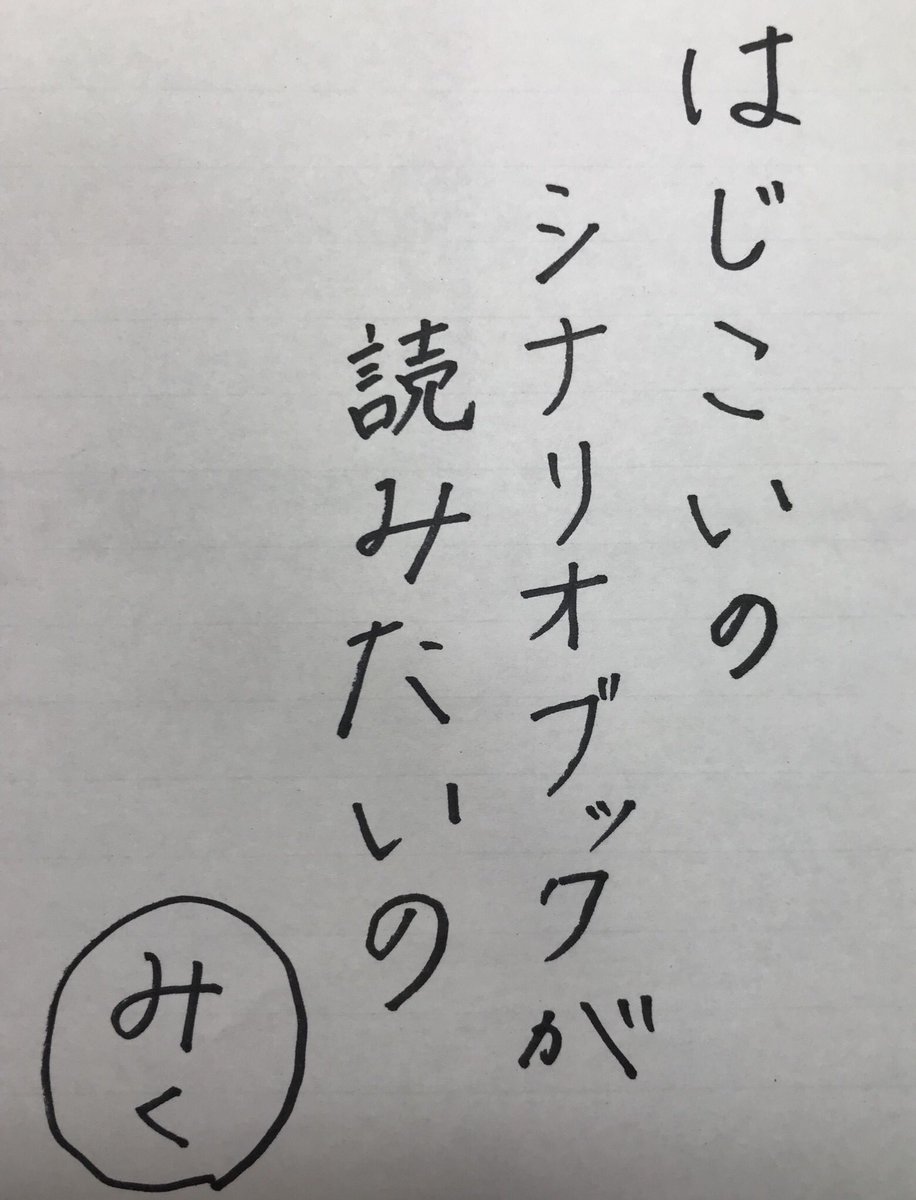 はじこいの
シナリオブックが
読みたいの
みく